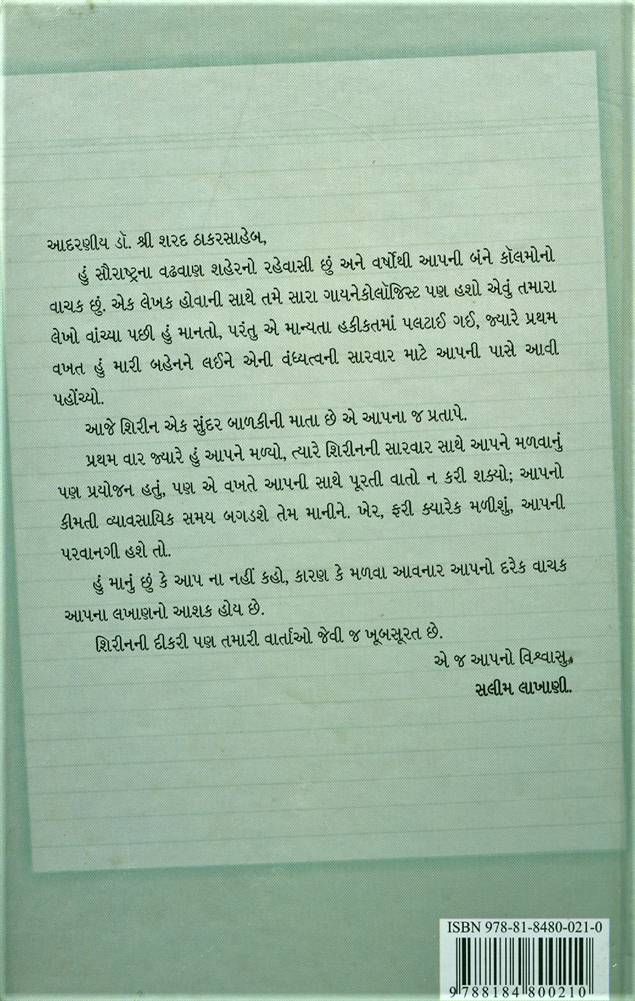 આદરણીય ડૉ. શ્રી શરદ ઠાકરસાહેબ,
હું સૌરાષ્ટ્રના વઢવાણ શહેરનો રહેવાસી છું અને વર્ષોથી આપની બંને કૉલમોનો
વાચક છું. એક લેખક હોવાની સાથે તમે સારા ગાયનેકોલૉજિસ્ટ પણ હશો એવું તમારા
લેખો વાંચ્યા પછી હું માનતો, પરંતુ એ માન્યતા હકીકતમાં પલટાઈ ગઈ, જ્યારે પ્રથમ
વખત હું મારી બહેનને લઈને એની વંધ્યત્વની સારવાર માટે આપની પાસે આવી
પહોંચ્યો.
આજે શિરીન એક સુંદર બાળકીની માતા છે એ આપના જ પ્રતાપે.
પ્રથમ વાર જ્યારે હું આપને મળ્યો, ત્યારે શિરીનની સારવાર સાથે આપને મળવાનું
પણ પ્રયોજન હતું, પણ એ વખતે આપની સાથે પૂરતી વાતો ન કરી શક્યો; આપનો
કીમતી વ્યાવસાયિક સમય બગડશે તેમ માનીને. ખેર, ફરી ક્યારેક મળીશું, આપની
પરવાનગી હશે તો.
હું માનું છું કે આપ ના નહીં કહો, કારણ કે મળવા આવનાર આપનો દરેક વાચક
આપના લખાણનો આશક હોય છે.
શિરીનની દીકરી પણ તમારી વાર્તાઓ જેવી જ ખૂબસૂરત છે.
એ જ આપનો વિશ્વાસુ,
સલીમ લાખાણી.
ISBN 978-81-8480-021-0
9 788184 800210